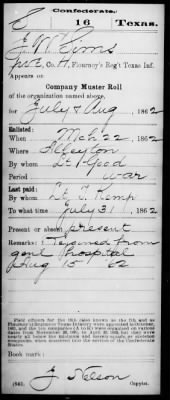 Confederate.
E 16 Texas.
E W Sims
Pvt, Co. H, Flournoy's Reg't Texas Inf.
Appears on
Company Muster Roll
of the organization named above,
for July & Aug, 1862
Enlisted:
When Mch 22, 1862
Where Alleyton
By whom Lt Good
Period war
Last paid:
By whom Lt. T. Kemp
To what time July 31, 1862
Present or absent present
Remarks: Returned from
genl hospital
Aug 15 62
Book mark:
J Nelson
(642) Copyist.